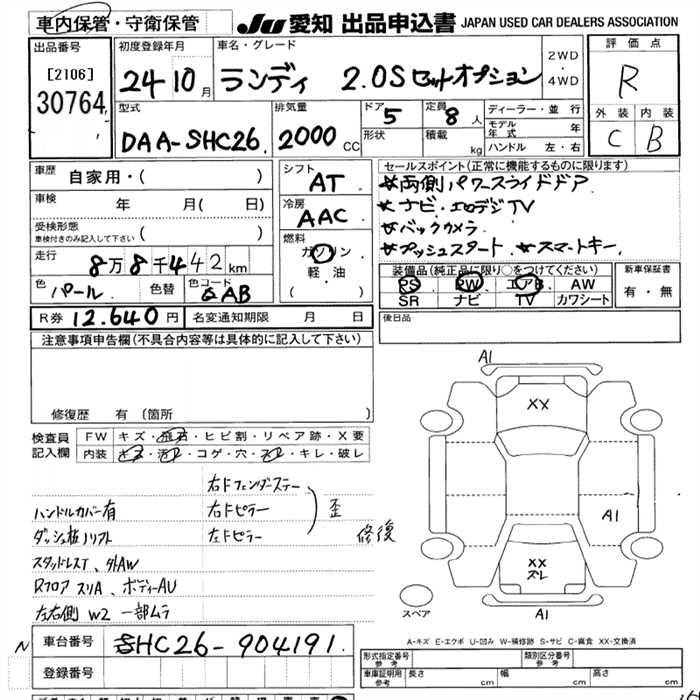 車内保管・守衛保管
JU 愛知 出品申込書 JAPAN USED CAR DEALERS ASSOCIATION
出品番号
[2106]
30764
初度登録年月
24 10月
車名・グレード
ランディ 2.0S セットオプション
2WD・4WD
評価点
R
型式
DAA-SHC26
排気量
2000 CC
ドア 5
形状
定員 8人
積載 kg
ディーラー・並行
モデル年式 年
ハンドル 左・右
外装 C
内装 B
車歴 自家用・( )
車検 年 月( 日)
受検形態
車検付きのみ記入して下さい ( )
走行 8万8千442km
色 パール 色替 色コード
シフト AT
冷房 AAC
燃料 ガソリン・軽油・( )
セールスポイント(正常に機能するものに限ります)
両側パワースライドドア
ナビ・
バックカメラ
プッシュスタート スマートキー
装備品(純正品に限り○をつけてください)
PS PW エアB AW
SR ナビ TV カワシート
新車保証書
有・無
R券 12.640円 名変通知期限 月 日
後日品
注意事項申告欄(不具合内容等は具体的に記入して下さい)
修復歴 有 〔箇所 〕
検査員記入欄
FW キズ・飛石・ヒビ割・リペア跡・X要
内装 キズ・汚レ・コゲ・穴・スレ・キレ・破レ
右Fフェンダーステー
ハンドルカバー有 右Fピラー 歪
左Fピラー 修復
スタッドレスT、外AW
Rフロアスリ
左右側 W2 一部ムラ
A1
XX
A1
XX
ズレ
A1
スペア
A-キズ E-エクボ U-凹み W-補修跡 S-サビ C-腐食 XX-交換済
車台番号 SHC26-904191
登録番号
形式指定番号 参考
類別区分番号 参考
車庫証明用 参考 長さ cm 幅 cm 高さ cm